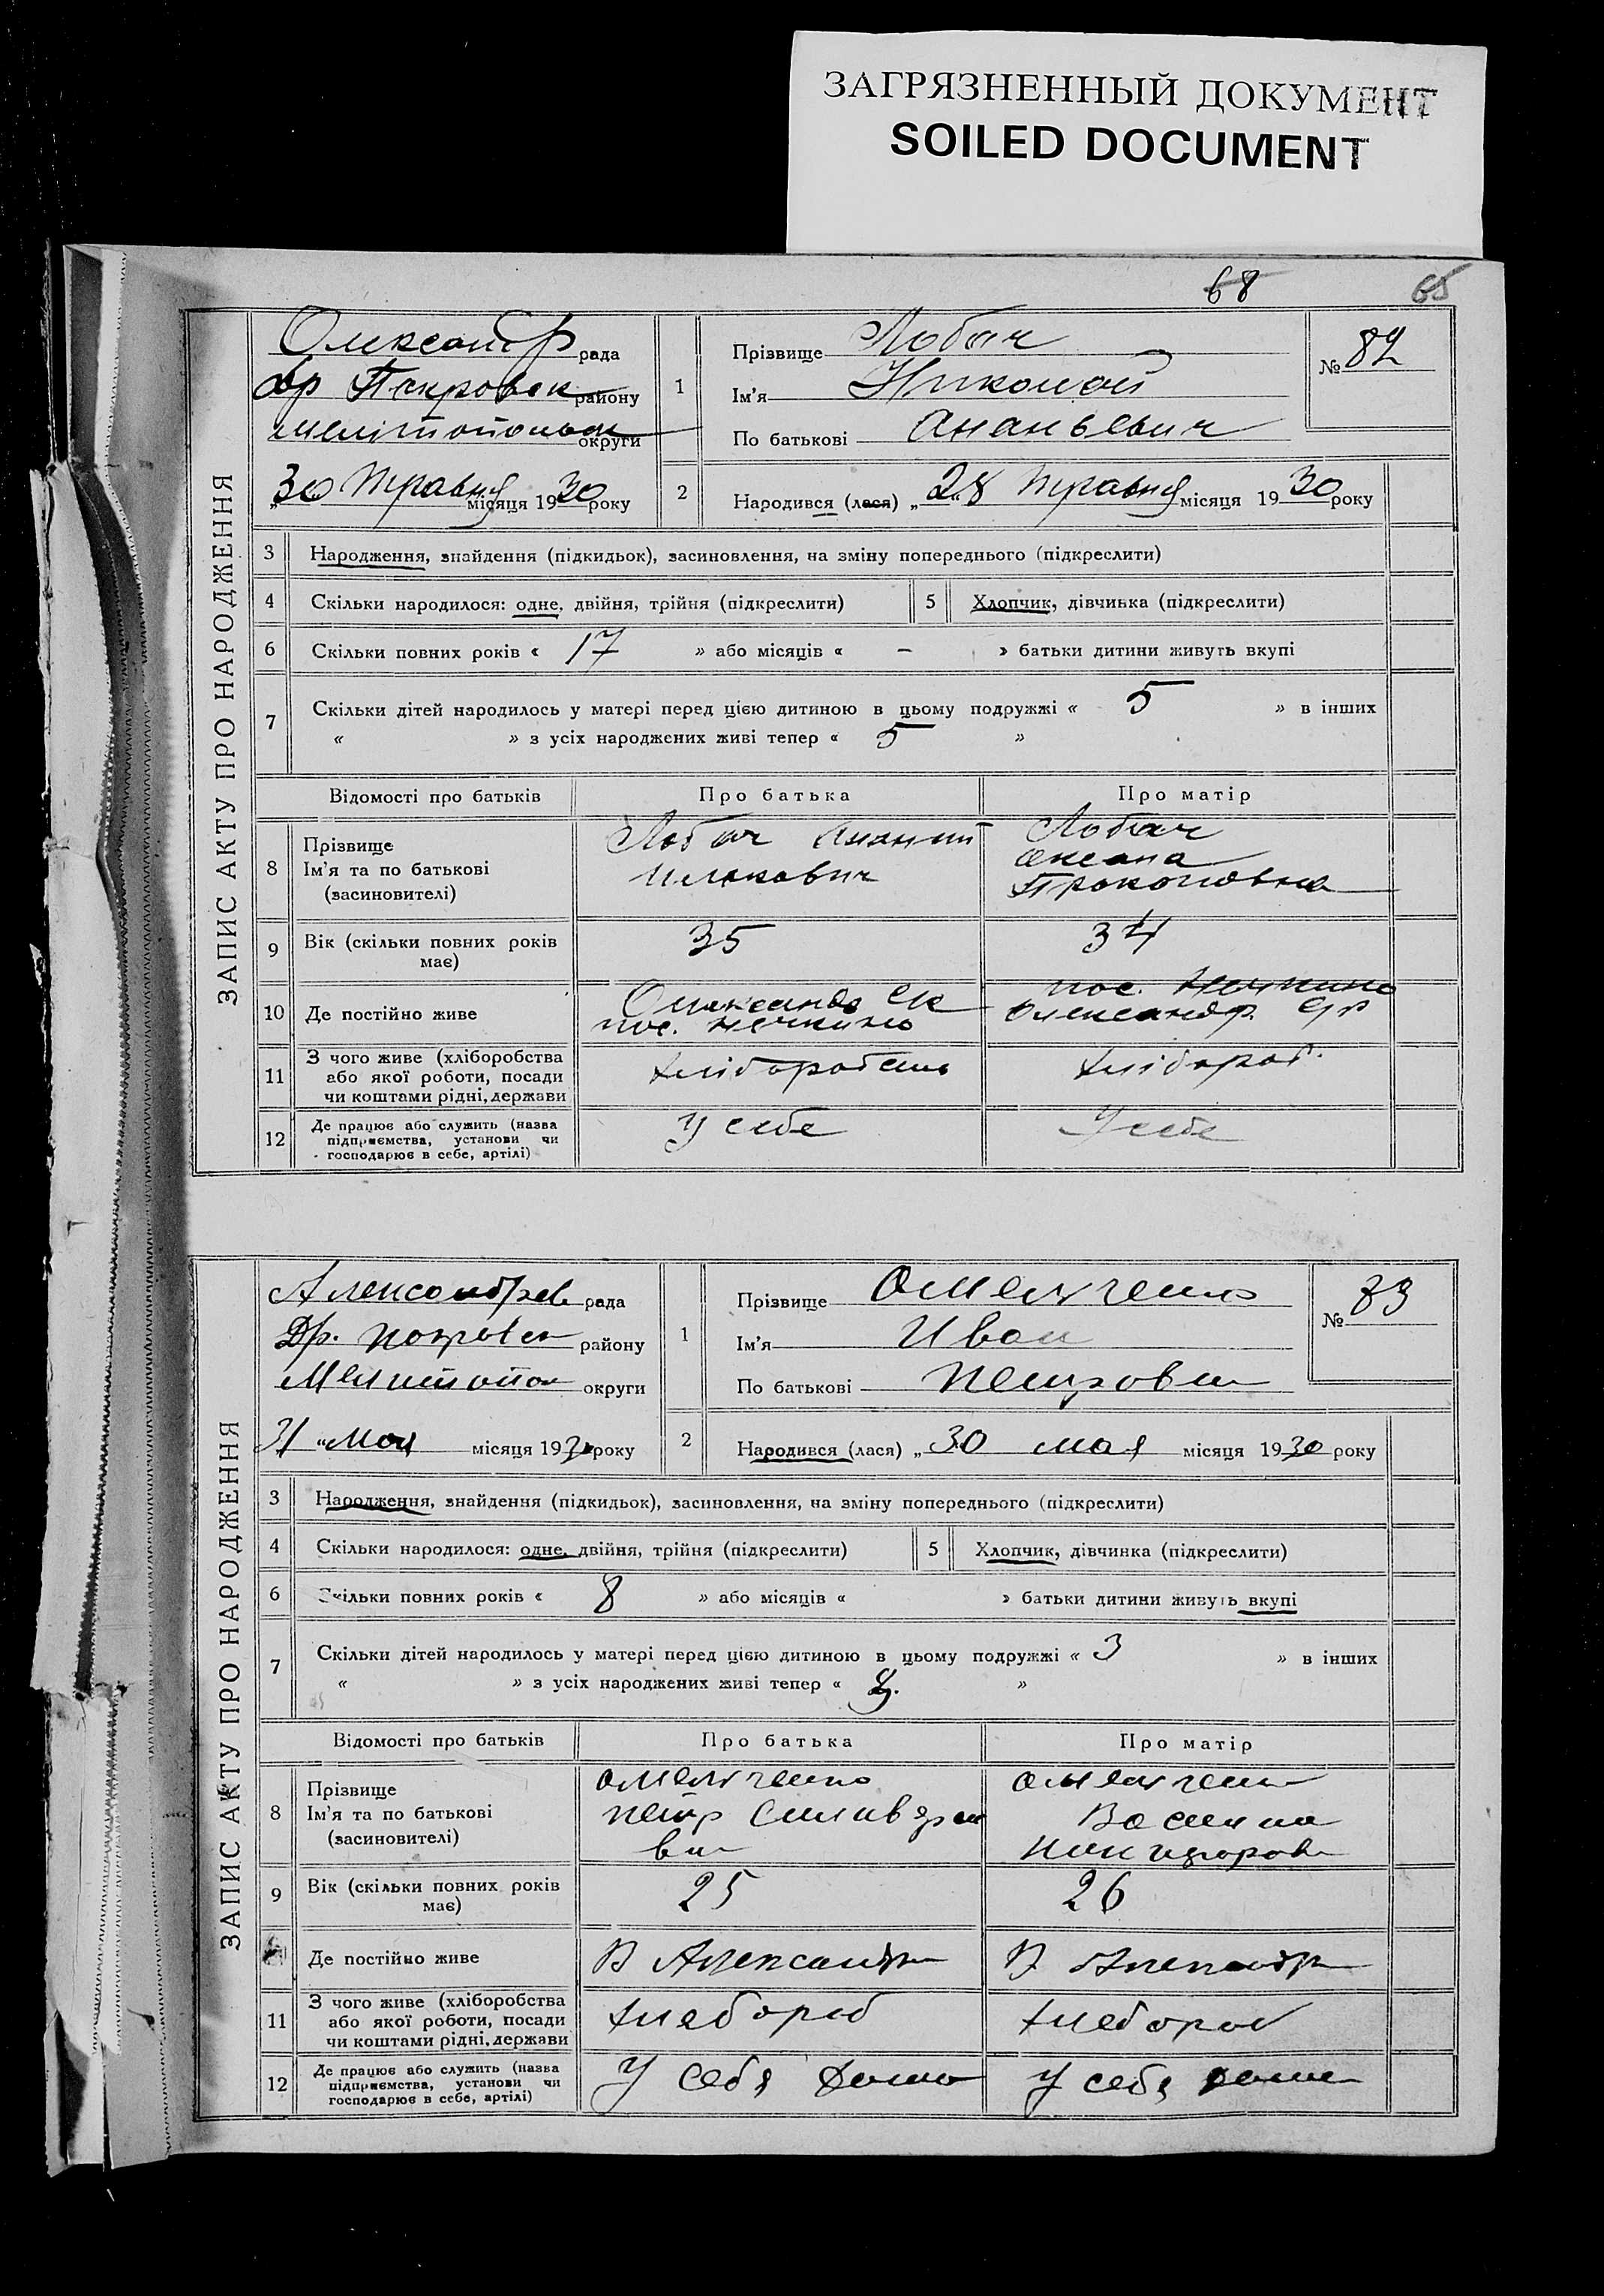 ЗАГРЯЗНЕННЫЙ ДОКУМЕНТ
SOILED DOCUMENT
68 65
ЗАПИС АКТУ ПРО НАРОДЖЕННЯ
Олександр рада
Вр Покровск району
Мелітопольск округи
„30" Травня місяця 1930 року
1
Прізвище Лобач
Ім'я Николай
По батькові Ананьевич
№ 82
2
Народився (лася) „28 Травня місяця 1930 року
3 Народження, знайдення (підкидьок), засиновлення, на зміну попереднього (підкреслити)
4 Скільки народилося: одне, двійня, трійня (підкреслити) 5 Хлопчик, дівчинка (підкреслити)
6 Скільки повних років « 17 » або місяців « – » батьки дитини живуть вкупі
7 Скільки дітей народилось у матері перед цією дитиною в цьому подружжі « 5 » в інших
« » з усіх народжених живі тепер « 5 »
Відомості про батьків Про батька Про матір
8 Прізвище
Ім'я та по батькові
(засиновителі)
Лобач Ананий
Лобач
Оксана
Прокоповна
9 Вік (скільки повних років має) 35 34
10 Де постійно живе
пос. Нечкино
пос. Нечкино
Олександр.
11 З чого живе (хліборобства
або якої роботи, посади
чи коштами рідні, держави
хлібороб.
12 Де працює або служить (назва
підприємства, установи чи
господарює в себе, артілі)
У себе У себе
ЗАПИС АКТУ ПРО НАРОДЖЕННЯ
Александров рада
Вр. Покровск району
Мелитопол округи
31 "Мая місяця 1930 року
1
Прізвище Омельченко
Ім'я Иван
По батькові Петрович
№ 83
2
Народився (лася) „30 мая місяця 1930 року
3 Народження, знайдення (підкидьок), засиновлення, на зміну попереднього (підкреслити)
4 Скільки народилося: одне, двійня, трійня (підкреслити) 5 Хлопчик, дівчинка (підкреслити)
6 Скільки повних років « 8 » або місяців « » батьки дитини живуть вкупі
7 Скільки дітей народилось у матері перед цією дитиною в цьому подружжі « 3 » в інших
« » з усіх народжених живі тепер « »
Відомості про батьків Про батька Про матір
8 Прізвище
Ім'я та по батькові
(засиновителі)
Омельченко
Петр
Омельченко
Василина
9 Вік (скільки повних років має) 25 26
Де постійно живе В Александр В Александр
11 З чого живе (хліборобства
або якої роботи, посади
чи коштами рідні, держави
хлебороб хлебороб
12 Де працює або служить (назва
підприємства, установи чи
господарює в себе, артілі)
У себя дома У себя дома